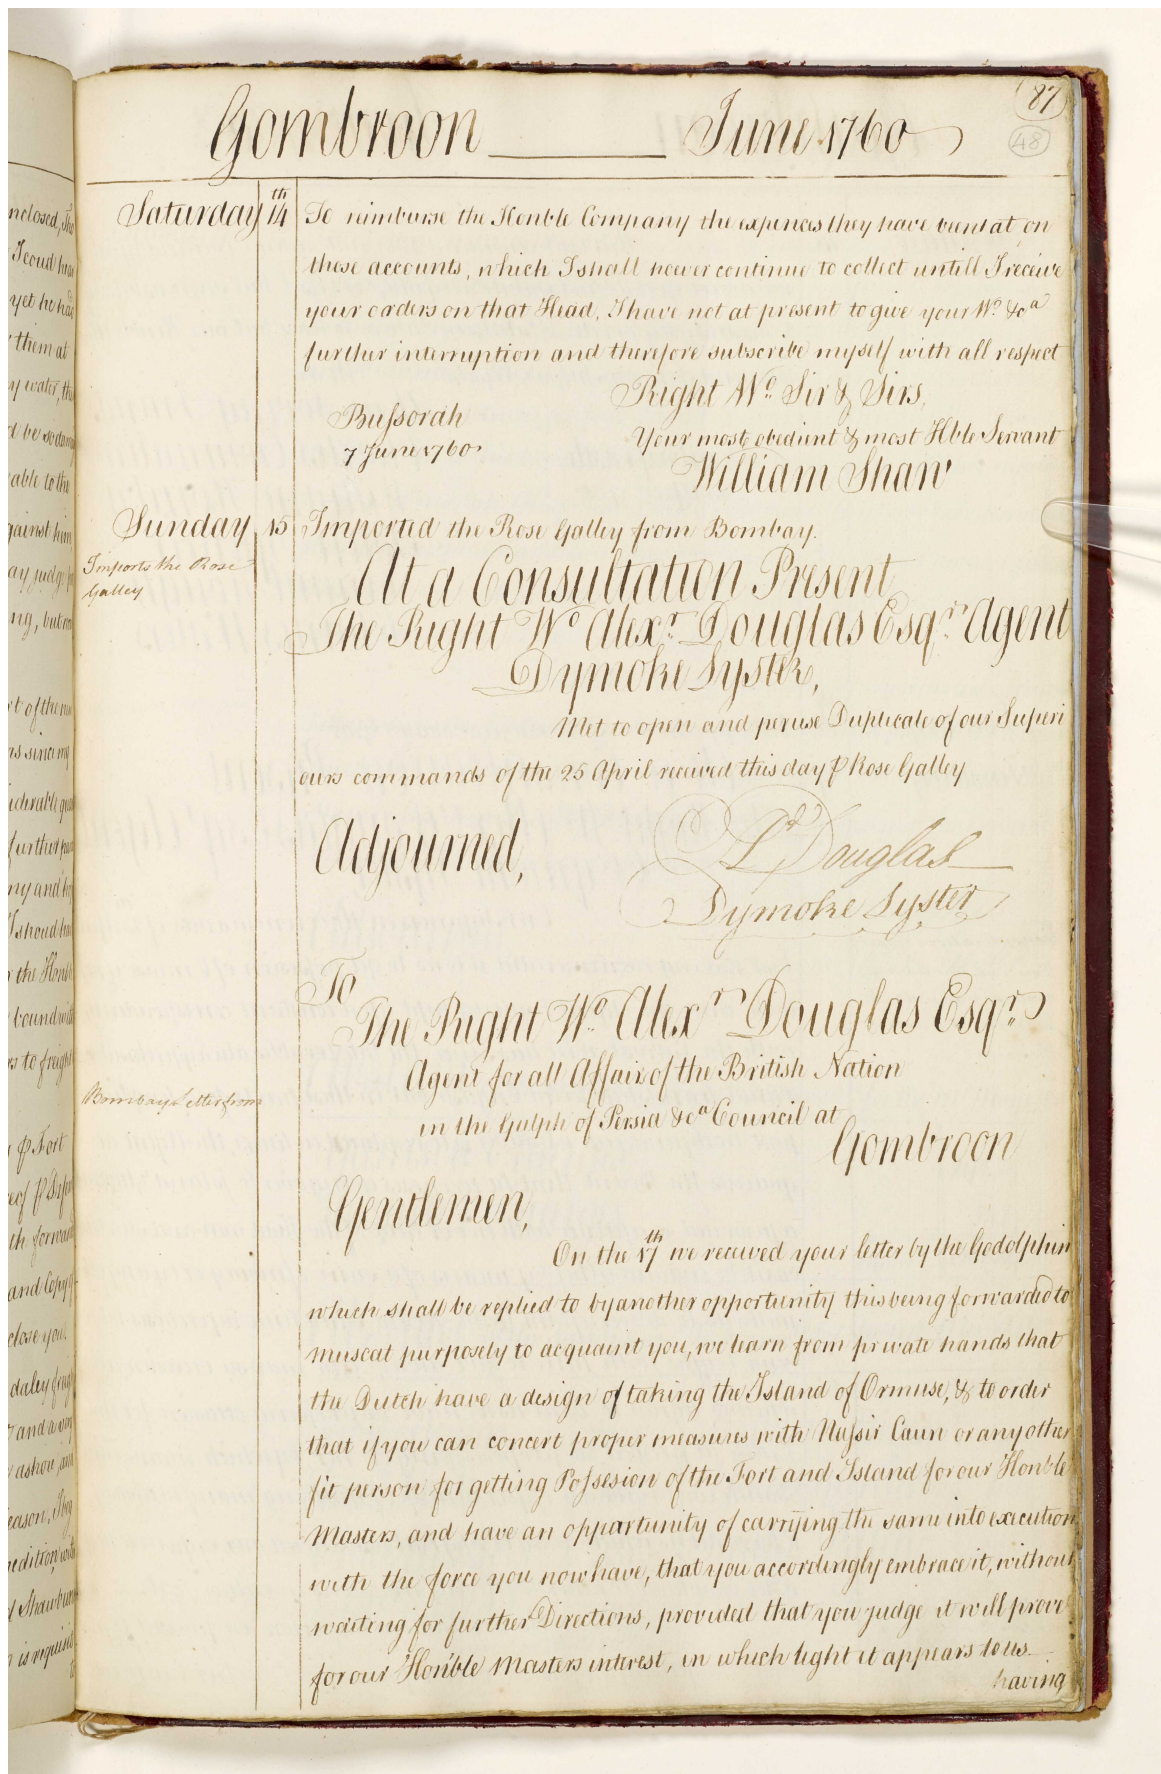 87
48
Gombroon June 1760
Saturday 14th To reimburse the Honble Company the expences they have been at on
these accounts, which I shall however continue to collect untill I receive
your orders on that Head, I have not at present to give your Wo. &ca
further interruption and therefore subscribe myself with all respect
Right Wo. Sir & Sirs.
Bussorah
Your most obedient & most Hble Servant
7 June 1760
William Shaw
Sunday 15 Imported the Rose Galley from Bombay.
Imports the Rose
Galley
At a Consultation Present
The Right Wo. Alexr. Douglas Esqr. Agent
Dymoke Lyster,
Met to open and peruse Duplicate of our Superi
ours commands of the 25 April received this day ⅌ Rose Galley
Adjourned,
Douglas
Dymoke Lyster
To
The Right Wo. Alexr Douglas Esqr.
Agent for all Affairs of the British Nation
in the Gulph of Persia &ca Council at
Bombay Letter from
Gombroon
Gentlemen,
On the 17th we received your letter by the Godolphin
which shall be replied to by another opportunity this being forwarded to
Muscat purposely to acquaint you, we learn from private hands that
the Dutch have a design of taking the Island of Ormuse, & to order
that if you can concert proper measures with Nassir Caun or any other
fit person for getting Possesion of the Fort and Island for our Honble
Masters, and have an oppartunity of carrying the same into execution
with the force you now have, that you accordingly embrace it, without
waiting for further Directions, provided that you judge it will prove
for our Honble Masters interest, in which light it appears to us
having